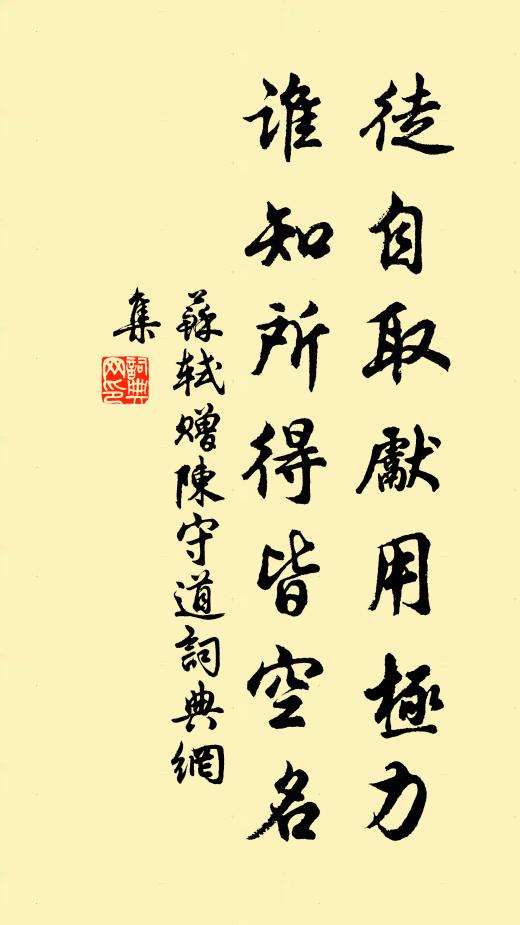 徒自取獻用極力
誰知所得皆空名
蘇軾贈陳守道詞典網
集
詞典
网印